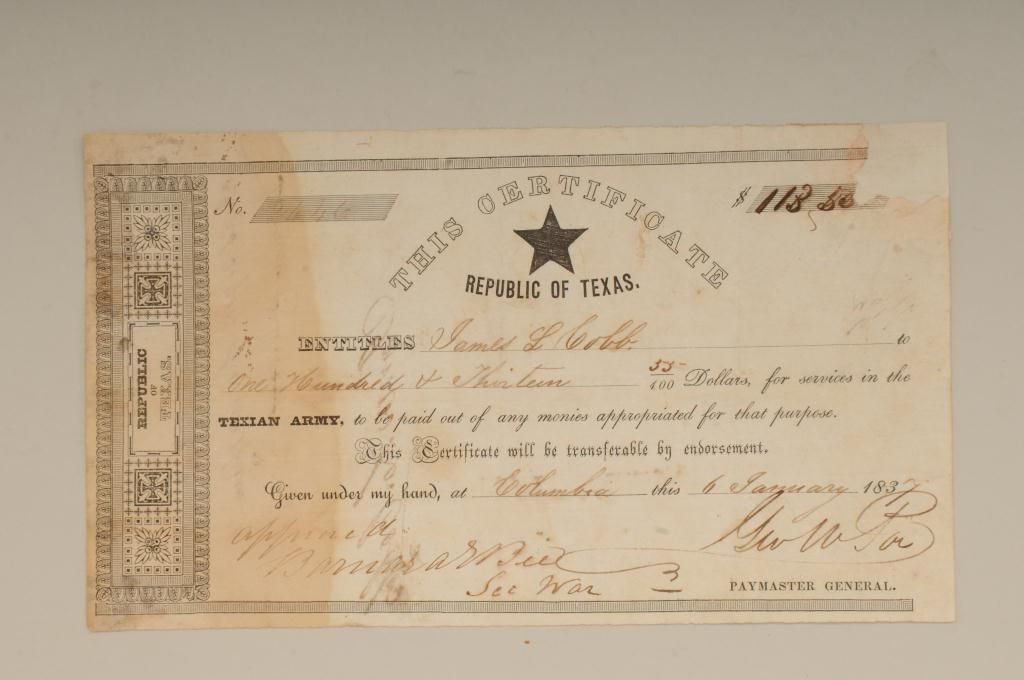 No.
$ 113 55
THIS CERTIFICATE
REPUBLIC OF TEXAS.
ENTITLES James L Cobb. to
One Hundred & Thirteen 55/100 Dollars, for services in the
TEXIAN ARMY, to be paid out of any monies appropriated for that purpose.
This Certificate will be transferable by endorsement.
Given under my hand, at Columbia this 6 January 1837
approved
Barnard E Bee
Sec War
Geo W Poe
PAYMASTER GENERAL.
REPUBLIC
OF
TEXAS.